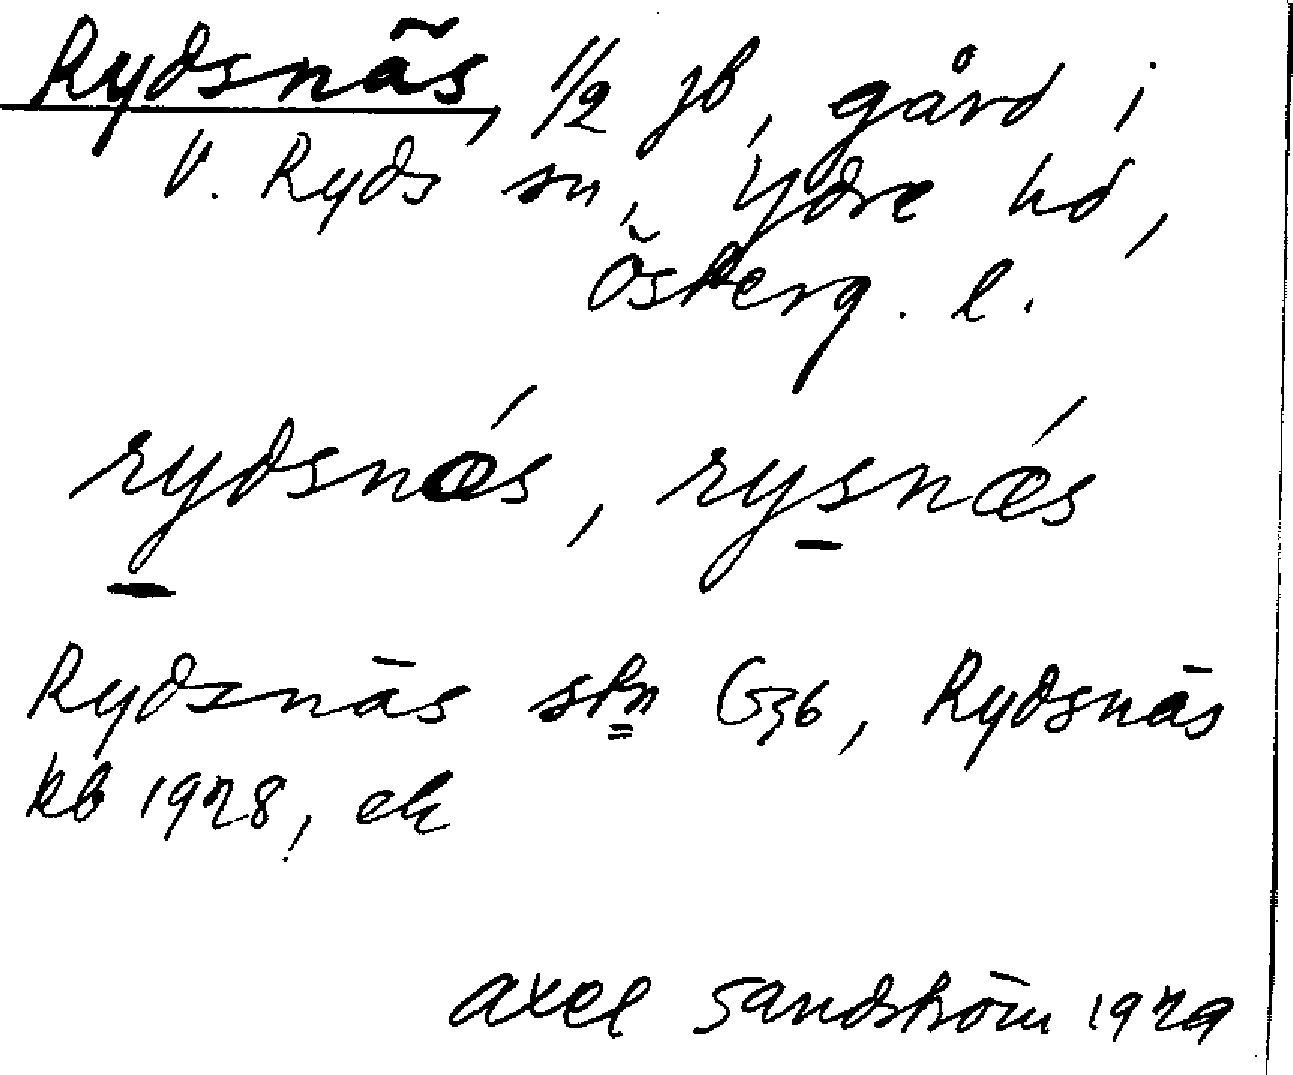 Rydsnäs, 1/2 jb, gård i
V. Ryds sn, Ydre hd,
Österg. l.
rydsnæ´s, rysnæ´s
Rydsnäs stn G36, Rydsnäs
kb 1928, ek
Axel Sandström 1929